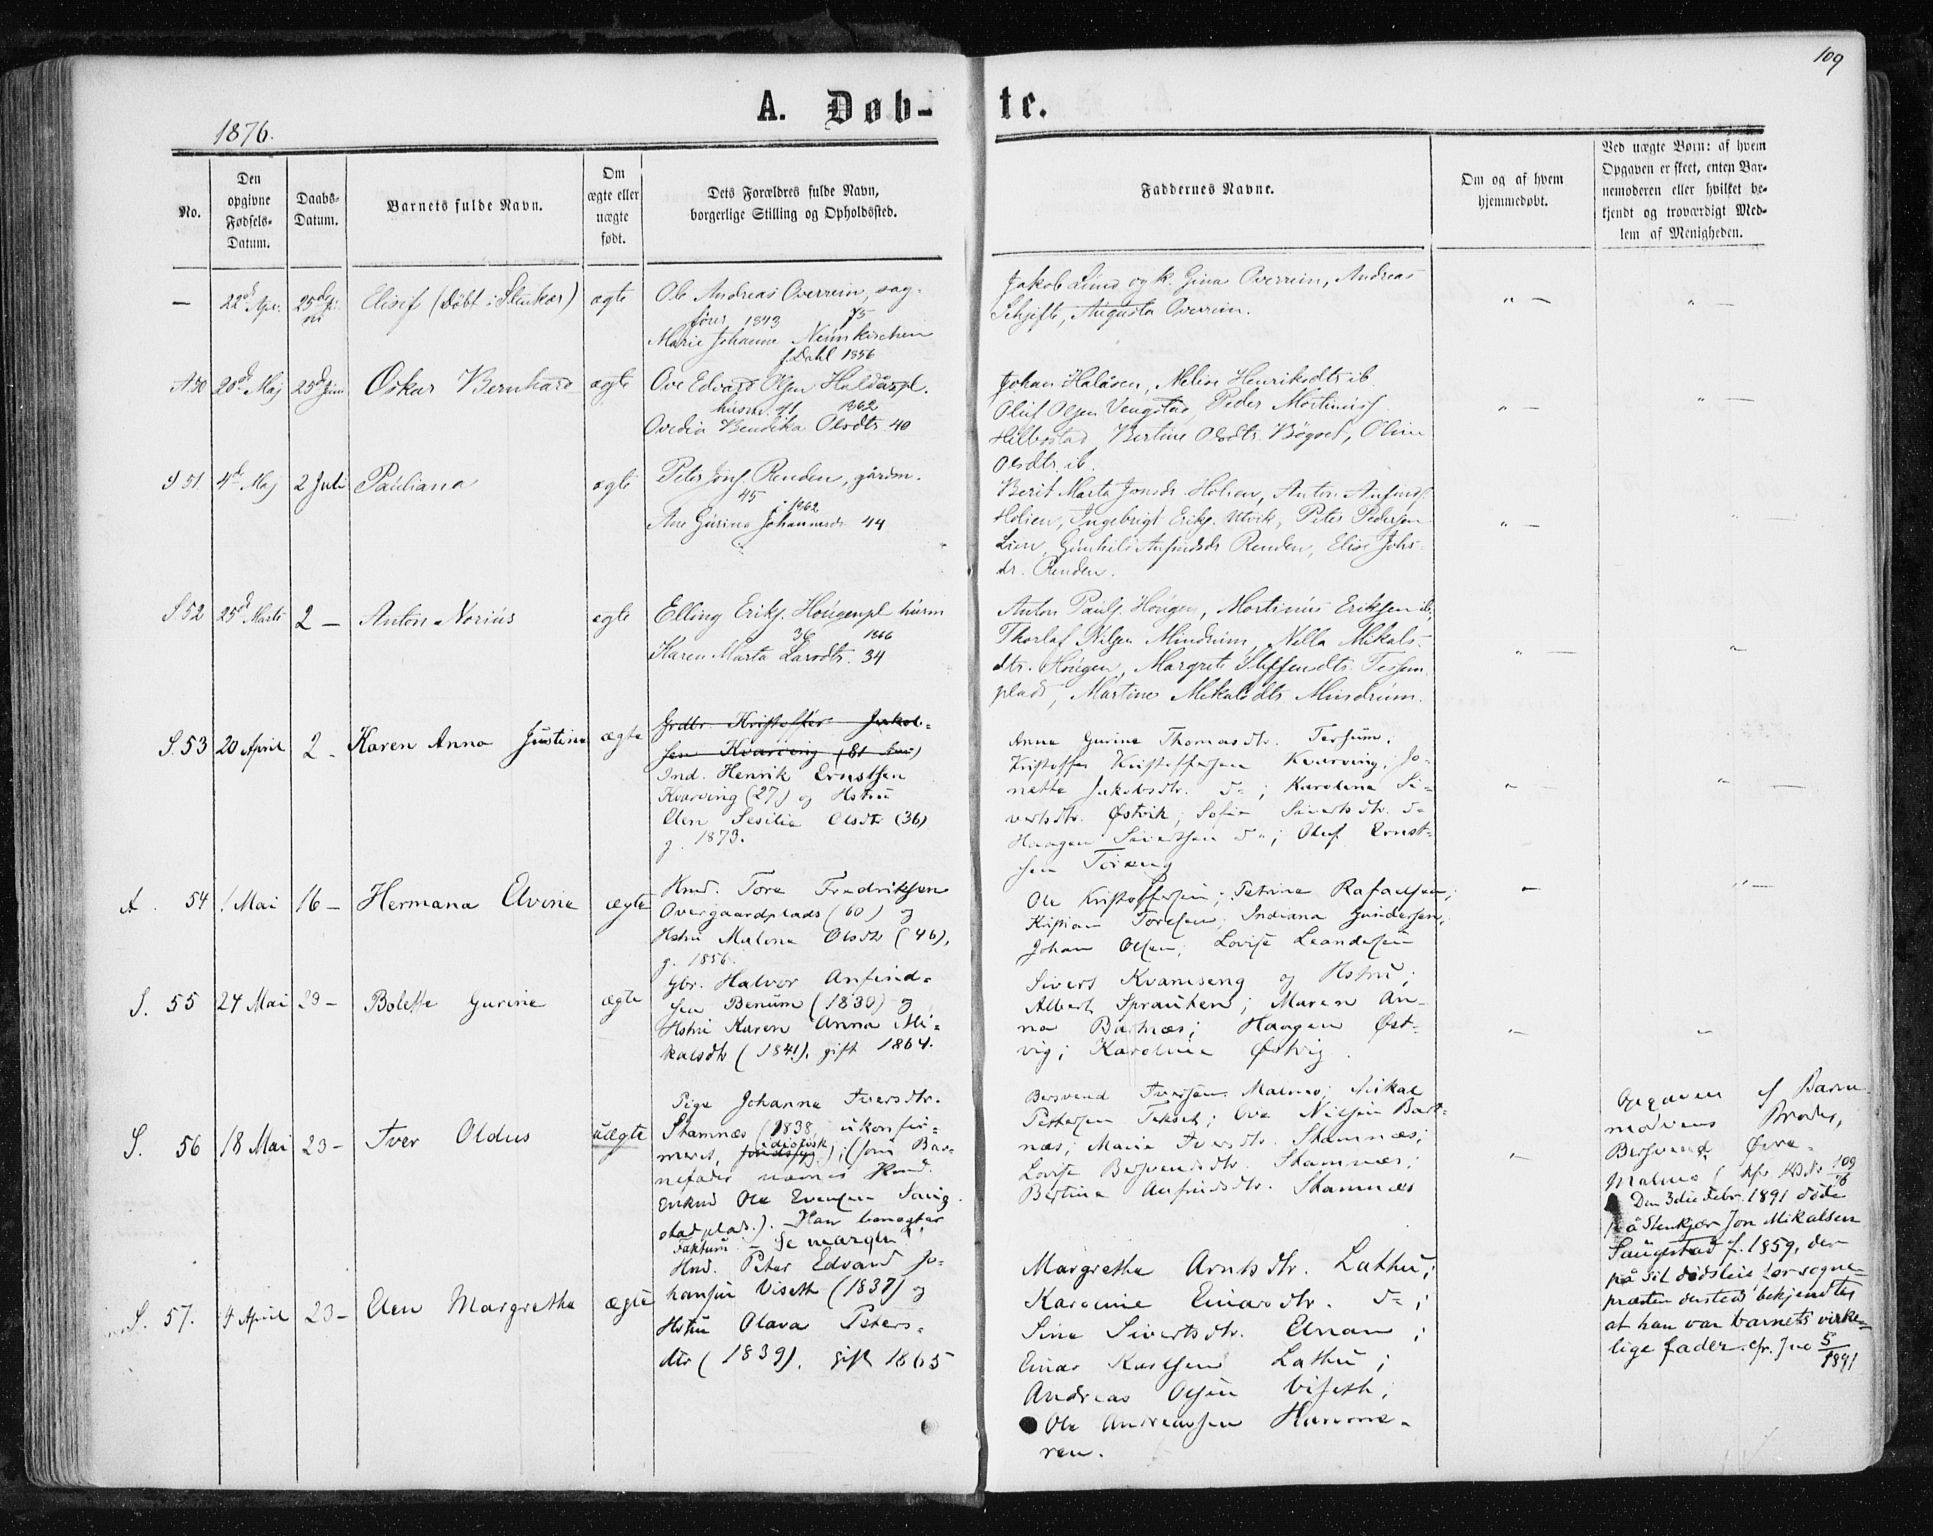 109
A. Døb-
te.
1876.
No.
Den
opgivne
Fødsels-
Datum.
Daabs-
Datum.
Barnets fulde Navn.
Om
ægte eller
uægte
født.
Dets Forældres fulde Navn,
borgerlige Stilling og Opholdssted.
Faddernes Navne.
Om og af hvem
hjemmedøbt.
Ved uægte Børn: af hvem
Opgaven er skeet, enten Bar-
nemoderen eller hvilket be-
kjendt og troværdigt Med-
lem af Menigheden.
— 22d Apr. Elisef (Døbt i Stenkær) ægte
Ole Andreas Overrein, sag-
fører 1843 75
Marie Johanne
f. Dahl 1856
Jakob Lund og k. Gina Overrein, Andreas
Schjefte, Augusta Overrein.
" — " —
A 50 20d Maj 25d Juni Oskar Bernhard ægte
Ove Edvard Olsen Haldåspl.
husm. 41 1862
Ovedia Bendika Olsdtr. 40
Johan Halåsen, Meline Henriksdtr ib.
Oluf Olsen Vengstad, Peder Mortinuss.
Hilbostad, Bertine Olsdtr. Bøgset, Oline
Olsdtr. ib.
" — " —
S 51. 4d Maj 2 Juli Pauliana ægte
Peter Jons. Renden, gårdm.
45 1862
Ane Gurina Johannesdr 44
Berit Marta Jonsdr. Holien, Anton Anfinds.
Holien, Ingebrigt Eriks. Utvik, Peter Pedersen
Lien, Gunhild Anfindsdr Renden, Elise Johs-
dr. Renden.
" —
S 52 25d Marts 2 — Anton Norius ægte
Elling Eriks. Hougenpl husm
36 1866
Karen Marta Larsdtr. 34
Anton Pauls. Hougen, Mortinus Eriksen ib,
Thorlaf Nilsen Mindrum, Nella Mikals-
dtr. Hougen, Margrete Steffensdtr. Tessem
plads, Martine Mikalsdtr Mindrum.
" — "
S. 53 20 April 2 — Karen Anna Justine ægte
Grdbr. Kristoffer Jakob-
sen Kvarving (81
Ind. Henrik Ernstsen
Kvarving (27) og Hstru
Elen Sesilie Olsdtr (36)
g. 1873.
Anne Gurine Thomasdtr. Tessum;
Kristoffer Kristoffersen Kvarving; Jo-
nette Jakobsdtr. do; Karolina Si-
vertsdtr. Østvik; Sofie Sivertsdtr. do
Haagen Sivertsen do; Oluf Ernst-
sen
" — " —
A. 54 1 Mai 16 — Hermana Elvine ægte
Hmd. Tore Fredriksen
Overgaardplads (60) og
Hstru Malena Olsdtr (46),
g. 1856.
Ole Kristoffersen; Petrine Rafaelsen;
Kristian Toresen; Indiana Gundersen;
Johan Olsen; Lovise Leandersen
— " —
S. 55 24 Mai 23 — Bolette Gurine ægte
Gbr. Halvor Anfind-
sen Benum (1830) og
Hstru Karen Anna Mi-
kalsdtr (1841), gift 1864.
Sivert Kvamseng og Hstru;
Albert Sprauten; Maren An-
na Bartnæs; Haagen Øst-
vig; Karoline Østvig.
" — "
S. 56 18 Mai 23 — Iver Oldus uægte
Pige Johanna Iversdtr.
Stamnæs (1838, ukonfir-
meret, idiotisk); (som Bar-
nefader nævnes Hmd.
Enkmd Ole Evensen Saug-
stadplads.). Han benægter
Faktum. — Se margen!
Bersvend Iversen Malmo; Mikal
Pettersen Tekset; Ove Nilsen Bart-
næs; Marie Iversdtr. Stamnæs;
Lovise Bersvendsdtr. Stamnæs;
Bertine Anfindsdtr. Stamnæs
"
Opgaven af Barne
moderens Broder,
Bersvend Øvre-
Malmo
109
76
Den 3die Febr. 1891 døde
på Stenkjær Jon Mikalsen
Saugestad f. 1859, der
på sit dødsleie for sogne-
præsten dersteds bekjendte,
at han var barnets virke-
lige fader. cfr. Jno 5/1891
S. 57. 4 April 23 — Elen Margrethe ægte
Hmd. Peter Edvard Jo-
hansen Viseth (1837) og
Hstru Olava Peters-
dtr (1839), gift 1865
Margrethe Arntsdtr. Lathu;
Karoline Einarsdtr. do;
Sine Sivertsdtr. Elnan;
Einar Karlsen Lathu;
Andreas Olsen Viseth;
Ole Andreassen Hamme-
ren.